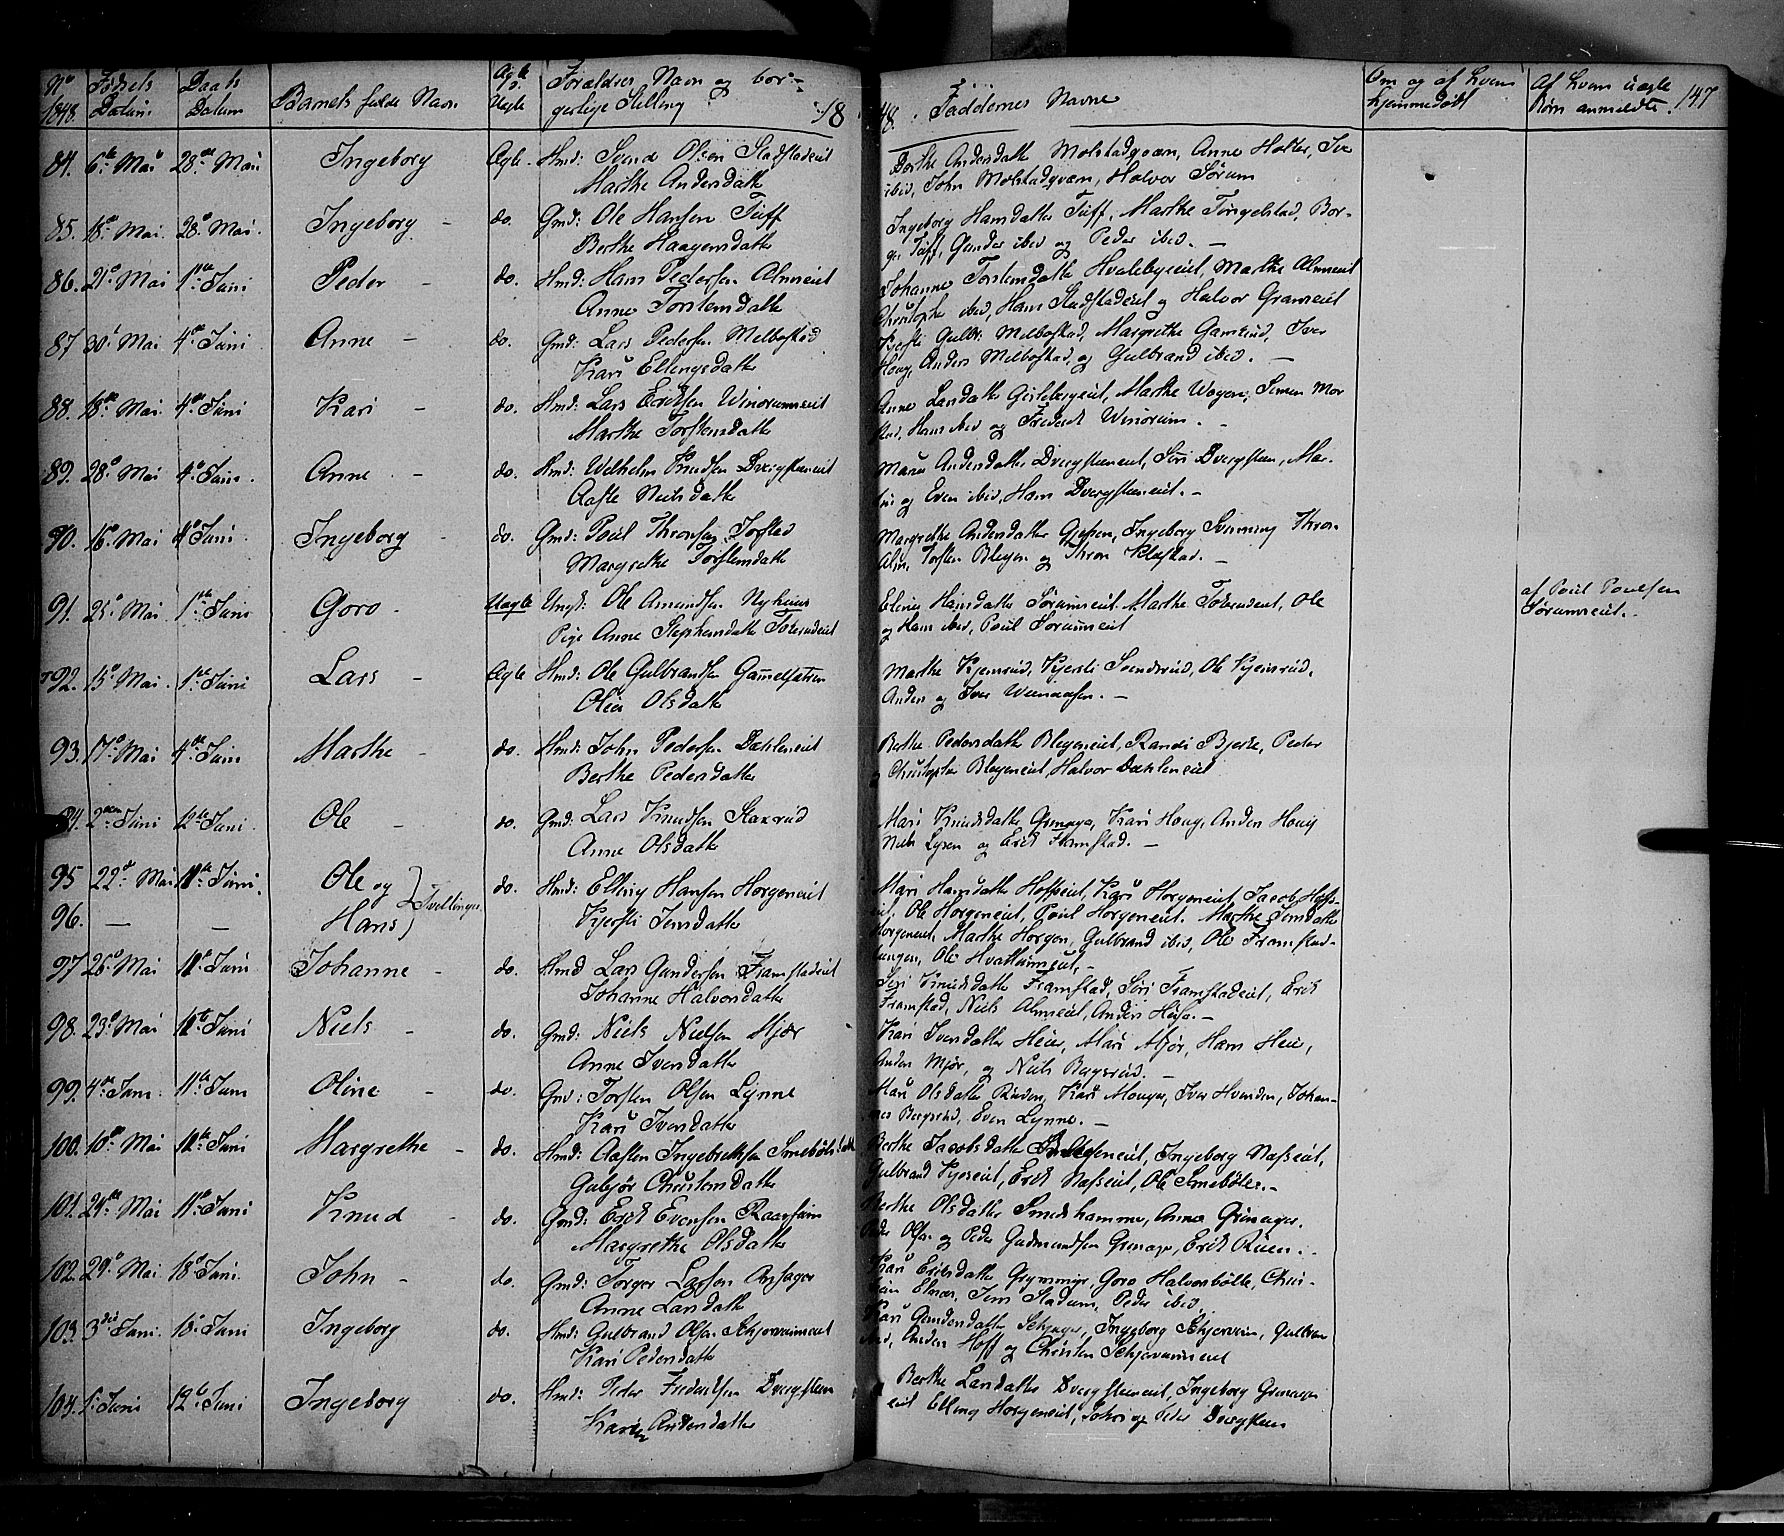 No 1848. Fødsels Datum Daabs Datum Barnets fulde Navn Ægte el. Uægte Forældres Navn og bor-
gerlige Stilling 18
48. Faddernes Navne Om og af hvem hjemmedøbt Af hvem uægte Børn anmeldte. 147
84. 6te Mai 28de Mai Ingeborg Ægte Hmd: Svend Olsen Stadstadeiet
Marthe Andersdatter
Berthe Andersdatter Molstadqvæn, Anne Holter, Iver
ibid, John Molstadqvæn, Halvor Sørum
85. 18de Mai. 28de Mai. Ingeborg - do. Gmd: Ole Hansen Tuff
Berthe Haagensdatter
Ingeborg Hansdatter Tuff, Marthe Tingelstad, Bor-
ger Tuff, Gunder ibid og Peder ibid. -
86. 21de Mai 1ste Juni Peder - do. Hmd: Hans Pedersen Almseiet
Anne Torstensdatter
Johanne Torstensdatter Hvalebyeiet, Marthe Almseiet
Christopher ibid, Hans Stadstadeiet og Halvor Granseiet
87 30te Mai 4de Juni Anne - do. Gmd: Lars Pedersen Melbostad
Kari Ellingsdatter
Kjersti Gulbr: Melbostad, Margrethe Gamkind, Iver
Houg, Anders Melbostad, og Gulbrand ibid. -
88. 18de Mai. 4de Juni Kari - do. Hmd: Lars Eriksen Winorumseiet
Marthe Torstensdatter
Anne Larsdatter Gislebergeiet, Marthe Wogen, Simen Mor
stad, Hans ibid og Frederik Winorum. -
89. 28de Mai 4de Juni. Anne - do. Hmd: Wilhelm Knudsen Dvergsteneiet
Aaste Nielsdatter
Maria Andersdatter Dvergsteneiet, Siri Dvergsten, Mar-
tin og Even ibid, Hans Dvergsteneiet. -
90. 16de Mai 4de Juni. Ingeborg do. Gmd: Poul Thronsen Torstad
Margrethe Torstensdatter
Margrethe Andersdatter Gjefsen, Ingeborg Svinning Thron
Alm, Torsten Blegen og Thron Klæstad. -
91. 25de Mai 1ste Juni Goro - Uægte Ungk: Ole Amundsen Nyhuus
Pige Anne Stephensdatter Toverudeiet
Eline Hansdatter Sørumseiet Marthe Toverudeiet, Ole
og Hans ibid, Poul Sørumseiet
af Poul Poulsen
Sørumseiet. -
92. 15de Mai. 1ste Juni Lars - Ægte Hmd: Ole Gulbrandsen Gammelsætren
Olea Olsdatter
Marthe Kjemsrud, Kjersti Svendsrud, Ole Kjemsrud,
Anders og Iver Weenaasen. -
93. 17de Mai 4de Juni Marthe - do. Hmd: John Pedersen Dæhleneiet
Berthe Pedersdatter
Berthe Pedersdatter Blegeneiet, Randi Bjerke, Peder
og Christopher Blegeneiet, Halvor Dæhleneiet
94. 2den Juni 12te Juni Ole - do. Gmd: Lars Knudsen Staxrud
Anne Olsdatter
Mari Knudsdatter Grinager, Kari Houg, Anders Houg
Niels Lysen og Erik Framstad. -
95 22de Mai 11te Juni. Ole og do. Hmd: Elling Hansen Horgeneiet
96. - - Hans } Tvillinger Kjersti Jensdatter
Mari Hansdatter Hoffseiet, Kari Horgeneiet, Jacob Hoffs-
eiet, Ole Horgeneiet, Poul Horgeneiet. Marthe Jensdatter
Horgeneiet, Marthe Horgen, Gulbrand ibid, Ole Framstad-
hagen, Ole Hvattumseiet, -
97 26de Mai 11te Juni Johanne - do. Hmd Lars Gundersen Framstadeiet
Johanne Halvorsdatter
Siri Knudsdatter Framstad, Siri Framstadeiet, Erik
Framstad, Niels Almseiet, Anders Heisa. -
98. 23de Mai 11te Juni Niels - do. Gmd: Niels Nielsen Mjør
Anne Iversdatter
Kari Iversdatter Heier, Mari Mjør, Hans Heier,
Anders Mjør, og Niels Bagsrud. -
99. 4de Juni. 11te Juni Oline - do. Gmd: Torsten Olsen Lynne
Kari Iversdatter
Mari Olsdatter Ruden, Kari Monger, Iver Hvinden, Johan-
nes Bergsrud, Even Lynne. -
100. 10de Mai 11te Juni Margrethe - do. Hmd: Aasten Ingebretsen Smebøleiet
Gubjør Christensdatter
Berthe Jacobsdatter Blegeneiet, Ingeborg Næseiet,
Gulbrand Kjoseiet, Erik Næseiet, Ole Smebøle. -
101. 24de Mai 11te Juni Knud - do. Gmd: Erik Evensen Raassum
Margrethe Olsdatter
Berthe Olsdatter Smedshammer, Anne Grinager.
Peder Olsen og Peder Gudmundsen Grinager, Erik Ruen. -
102. 29de Mai 18de Juni. John - do. Gmd: Torger Larsen Opsager
Anne Larsdatter
Kari Eriksdatter Grymmyr, Goro Halvorsbølle, Chri-
stian Elnæs, Jens Stadum, Peder ibid.
103. 3die Juni. 18de Juni Ingeborg do. Hmd: Gulbrand Olsen Skjerveimeiet
Kari Pedersdatter
Kari Gundersdatter Schjager, Ingeborg Skjerveim, Gulbran
ibid, Anders Hoff og Christen Schjerveimeiet
104. 1. Juni 12te Juni Ingeborg do. Hmd: Peder Fredriksen Dvergsten
Karen Andersdatter
Berthe Larsdatter Dvergsteneiet, Ingeborg Grinager
eiet Elling Horgeneiet, John og Peder Dvergsten